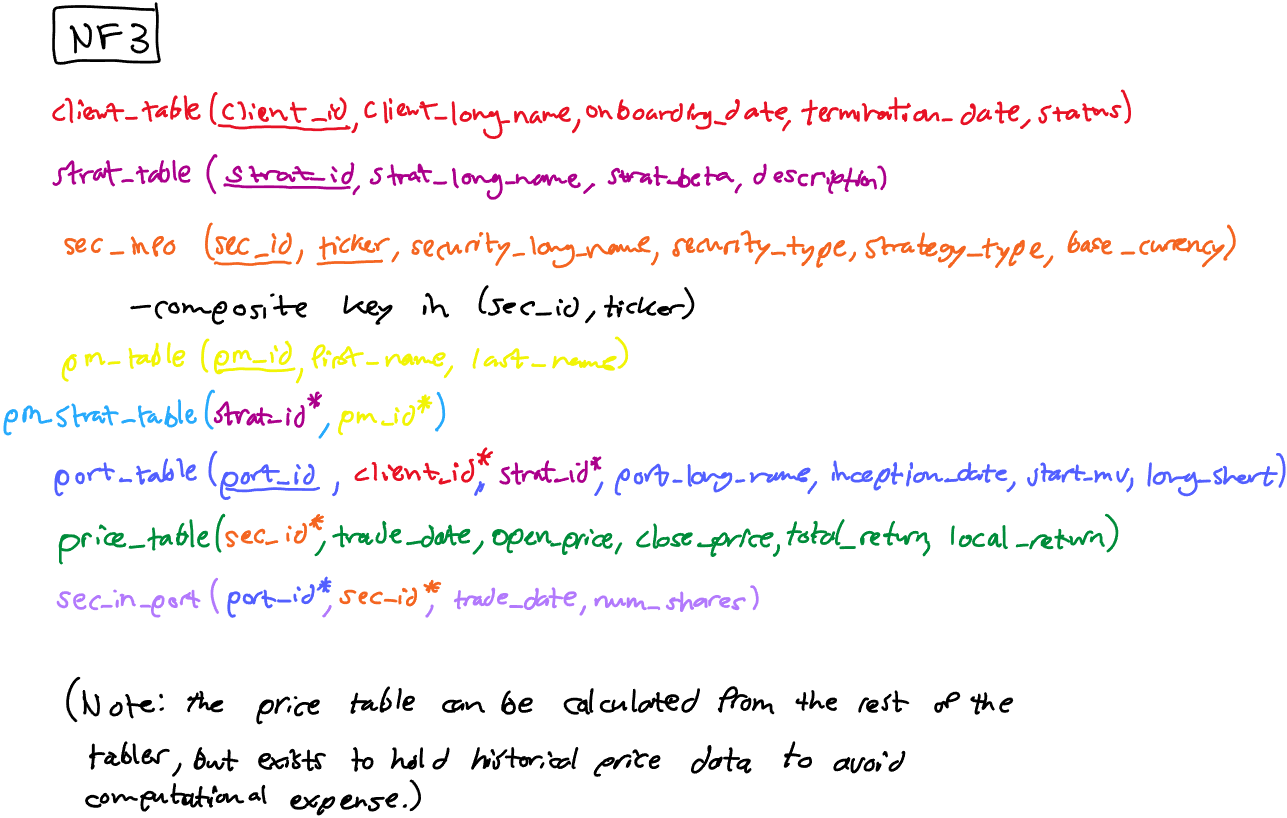 NF3
client_table (client_id, client_long_name, onboarding_date, termination_date, status)
strat_table (strat_id, strat_long_name, strat_beta, description)
sec_info (sec_id, ticker, security_long_name, security_type, strategy_type, base_currency)
-composite key in (sec_id, ticker)
pm_table (pm_id, first_name, last_name)
pm_strat_table (strat_id*, pm_id*)
port_table (port_id, client_id*, strat_id*, port_long_name, inception_date, start_mv, long_short)
price_table (sec_id*, trade_date, open_price, close_price, total_return, local_return)
sec_in_port (port_id*, sec_id*, trade_date, num_shares)
(Note: the price table can be calculated from the rest of the
tables, but exists to hold historical price data to avoid
computational expense.)